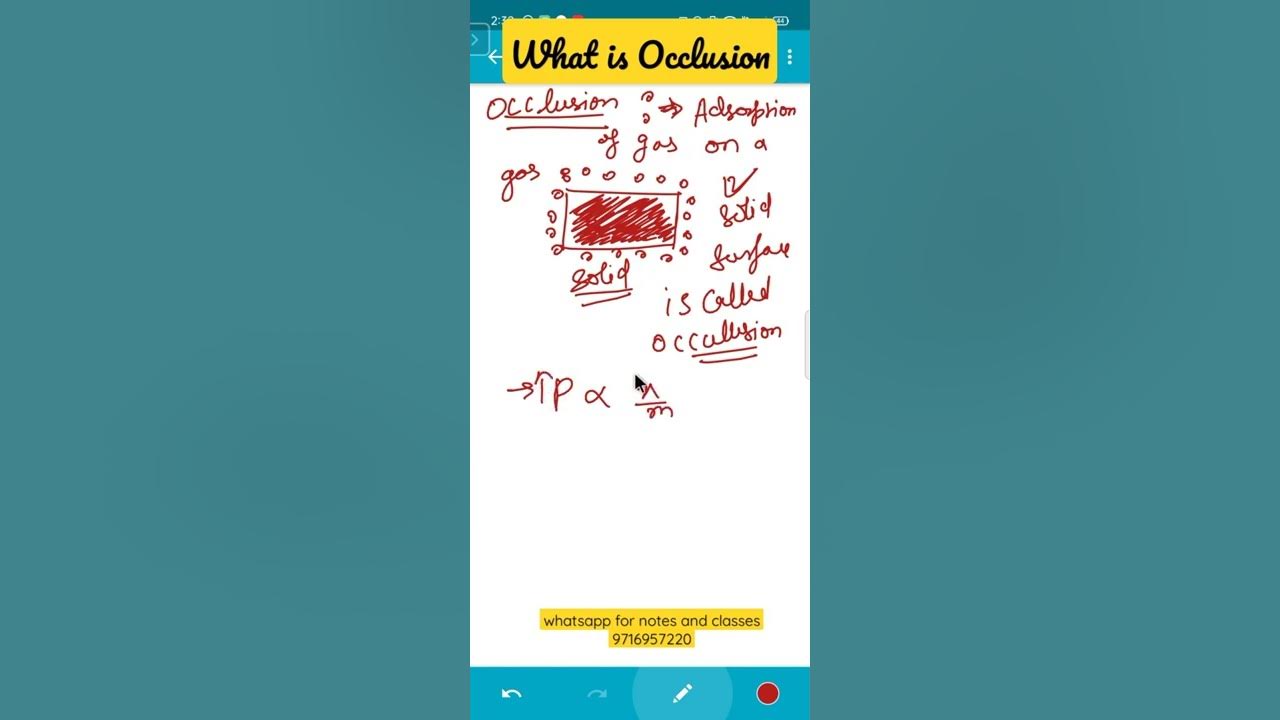 2:3
What is Occlusion
Occlusion : → Adsorption
of gas on a
gas
solid
surface
solid
is called
occullusion
→ ↑P ∝ x/m
whatsapp for notes and classes
9716957220